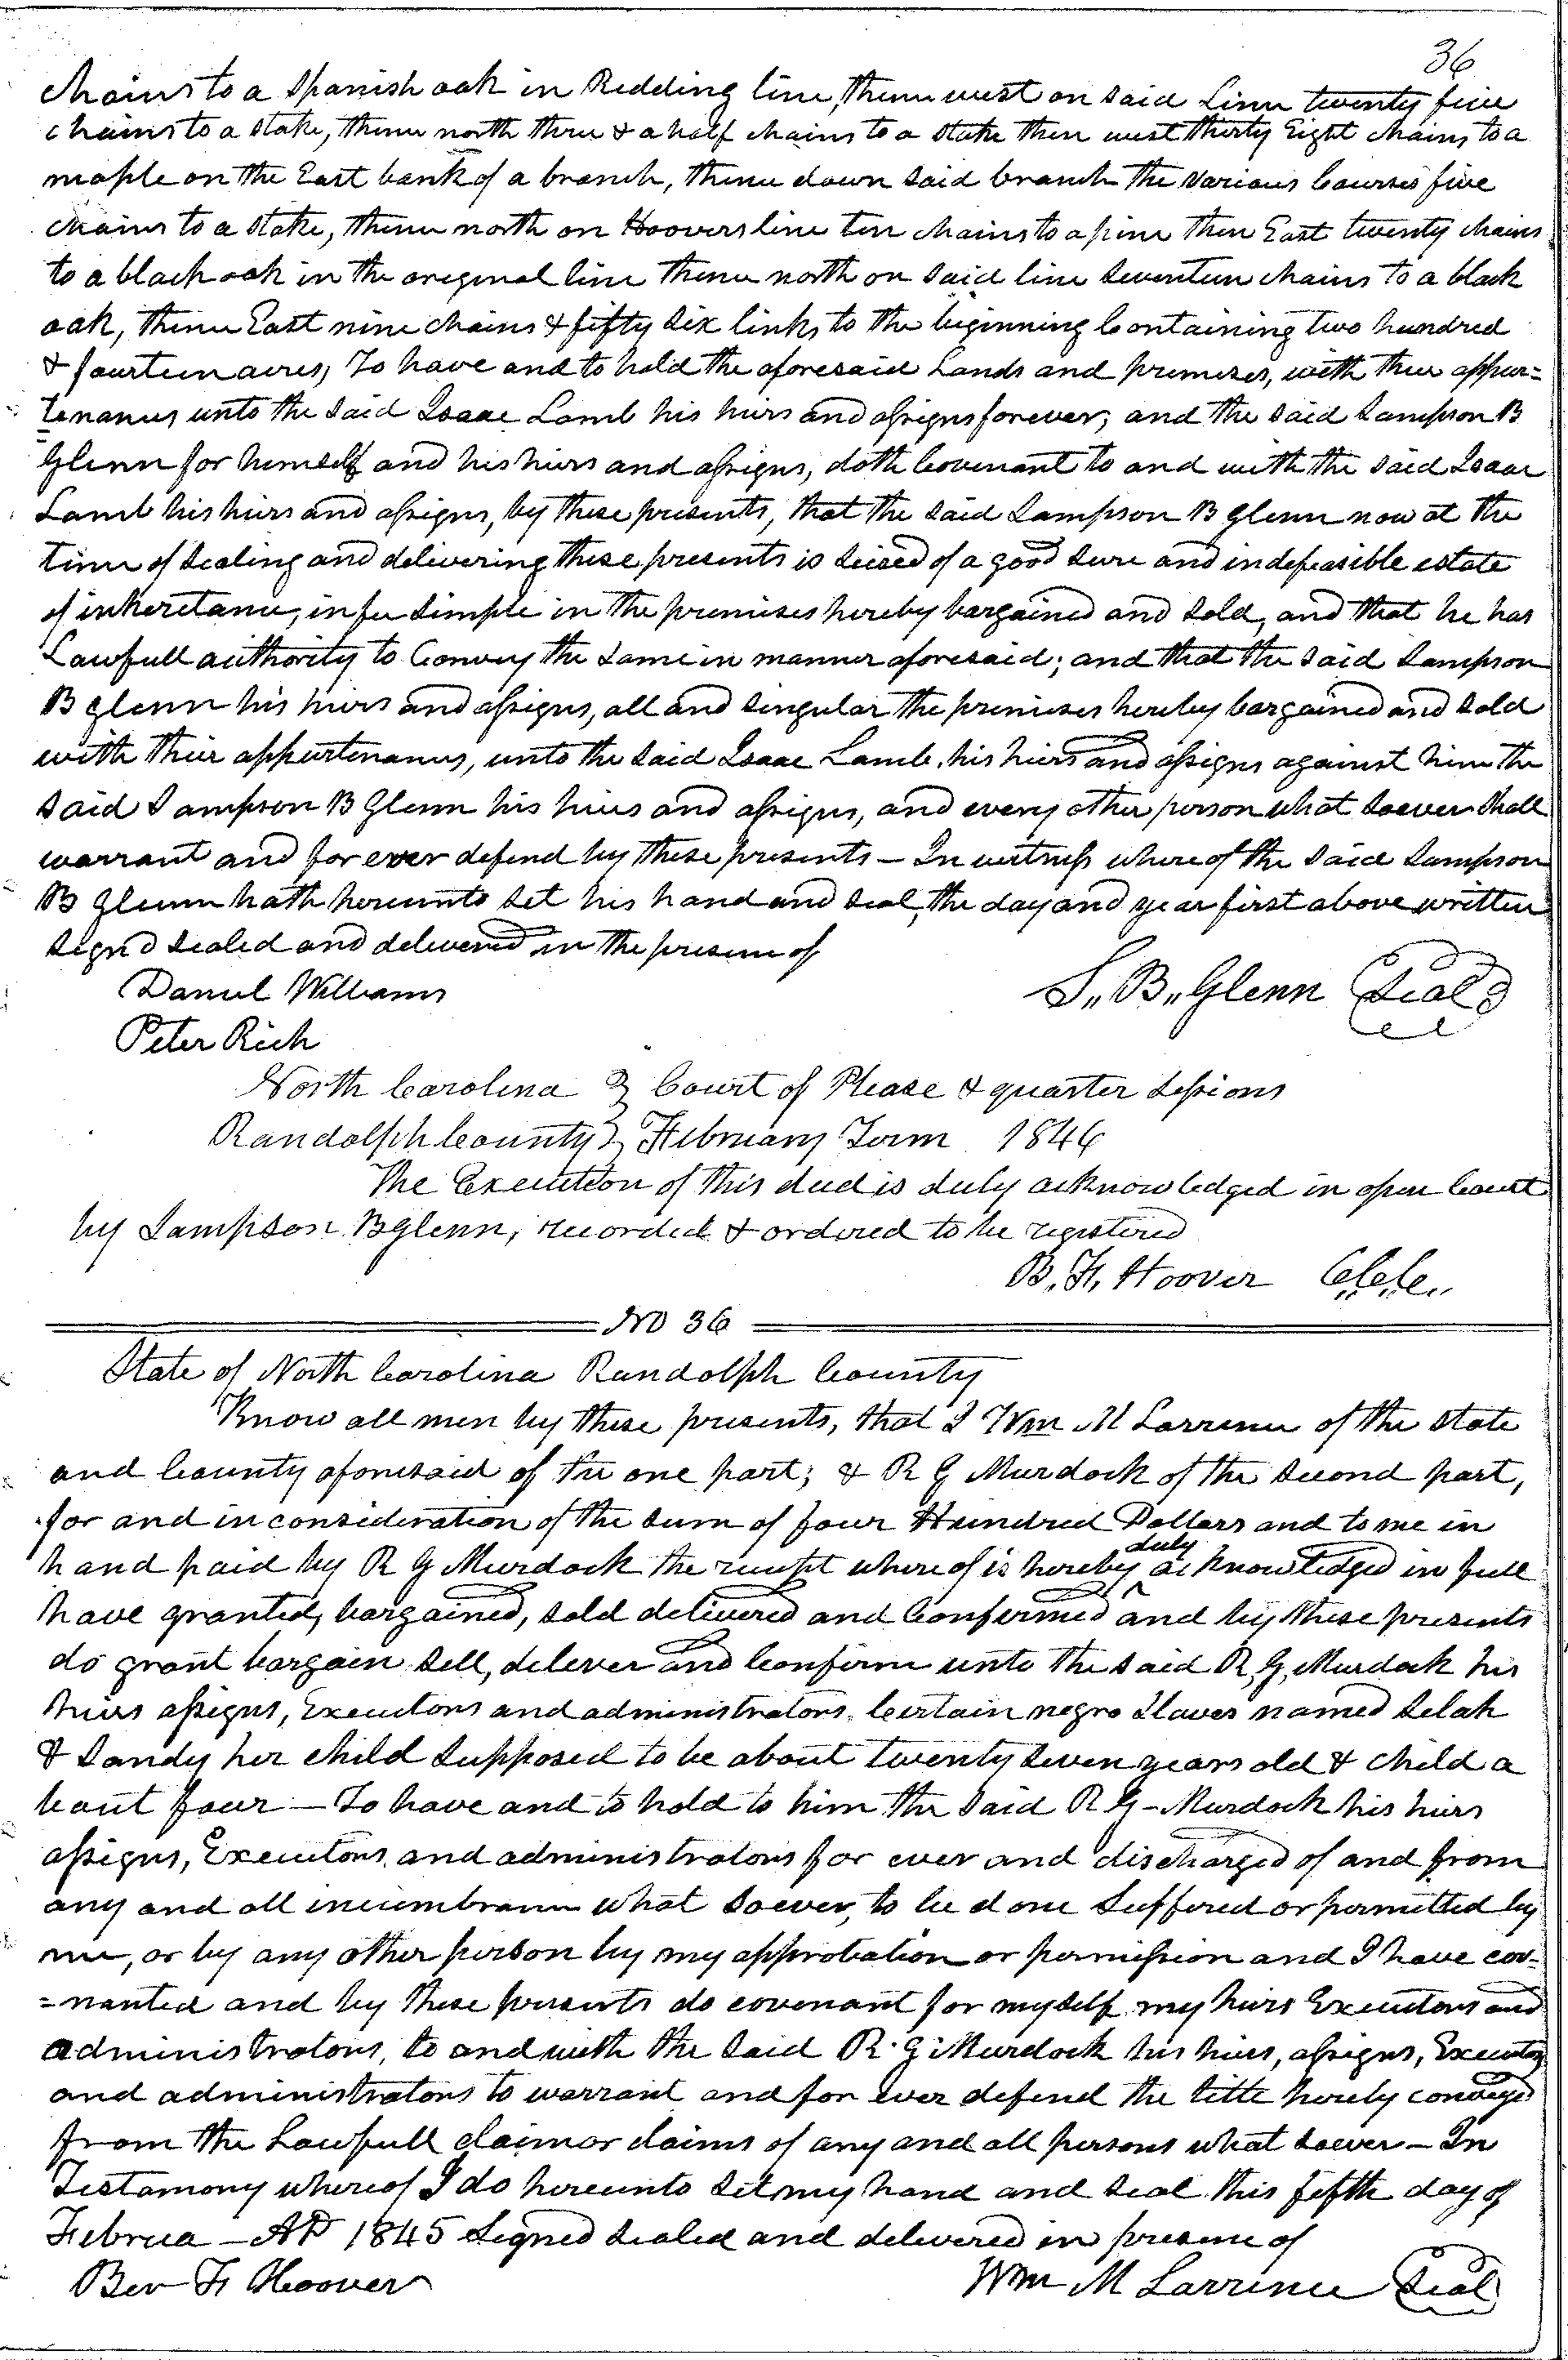 36
chains to a Spanish oak in Redding line, thence west on said Line twenty five
chains to a stake, thence north three & a half chains to a stake then west thirty Eight chains to a
maple on the East bank of a branch, thence down said branch the various Courses five
chains to a stake, thence north on Hoovers line ten chains to a pine then East twenty chains
to a black oak in the original line thence north on said line seventeen chains to a black
oak, thence East nine chains & fifty six links to the beginning Containing two hundred
& fourteen acres, To have and to hold the aforesaid Lands and premises, with their appur=
tenances unto the said Isaac Lamb his heirs and assigns forever, and the said Sampson B
Glenn for himself and his heirs and assigns, doth Covenant to and with the said Isaac
Lamb his heirs and assigns, by these presents, that the said Sampson B Glenn now at the
time of sealing and delivering these presents is seized of a good sure and indefeasible estate
of inheritance, in fee simple in the premises hereby bargained and sold, and that he has
Lawfull authority to Convey the same in manner aforesaid; and that the said Sampson
B Glenn his heirs and assigns, all and singular the premises hereby bargained and sold
with their appurtenances, unto the said Isaac Lamb, his heirs and assigns against him the
said Sampson B Glenn his heirs and assigns, and every other person what soever shall
warrant and for ever defend by these presents – In witness where of the said Sampson
B Glenn hath hereunto set his hand and seal, the day and year first above written
Signd sealed and delivered in the presence of
Daniel Williams
S. B. Glenn Seal
Peter Rich
North Carolina } Court of Please & quarter Sessions
Randolph County } February Term 1846
The Execution of this deed is duly acknowledged in open Court
by Sampson B Glenn, recorded & ordered to be registered
B. F. Hoover C.C.C.
No 36
State of North Carolina Randolph County
Know all men by these presents, that I Wm M Larrence of the State
and County aforesaid of the one part; & R G Murdock of the second part,
for and in consideration of the sum of four Hundred Dollars and to me in
hand paid by R G Murdock the receipt where of is hereby duly acknowledged in full
have granted, bargained, sold delivered and Confirmed and by these presents
do grant bargain sell, deliver and Confirm unto the said R. G. Murdock his
heirs assigns, Executors and administrators, Certain negro slaves named Selah
& Sandy her child supposed to be about twenty seven years old & child a
bout four – To have and to hold to him the said R G – Murdock his heirs
assigns, Executors, and administrators for ever and discharged of and from
any and all incumbrance what soever, to be done suffered or permitted by
me, or by any other person by my approbation or permission and I have cov=
=nanted and by these presents do covenant for myself my heirs Executors and
administrators, to and with the said R. G. Murdock his heirs, assigns, Executors
and administrators to warrant and for ever defend the title hereby conveyed
from the Lawfull claim or claims of any and all persons what soever – In
Testamony whereof I do hereunto set my hand and seal this fifth day of
Februa – AD 1845 Signed sealed and delivered in presence of
Ben F Hoover
Wm M Larrence Seal